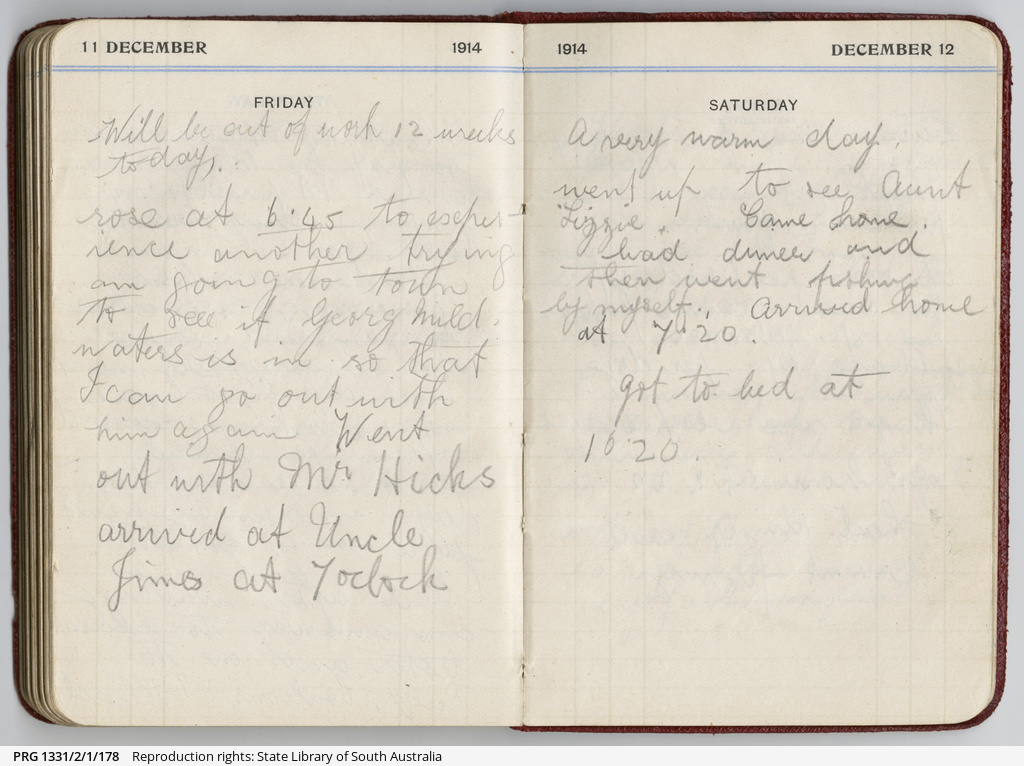 11 DECEMBER 1914
FRIDAY
Will be out of work 12 weeks
to day.
rose at 6.45 to exper-
ience another trying
am going to town
to see if Georg Mild.
waters is in so that
I can go out with
him again Went
out with Mr Hicks
arrived at Uncle
Jims at 7 oclock
1914 DECEMBER 12
SATURDAY
A very warm day.
went up to see Aunt
Lizzie. Came home.
had dinner and
then went fishing
by myself., Arrived home
at 7.20.
got to bed at
10.20.
PRG 1331/2/1/178 Reproduction rights: State Library of South Australia